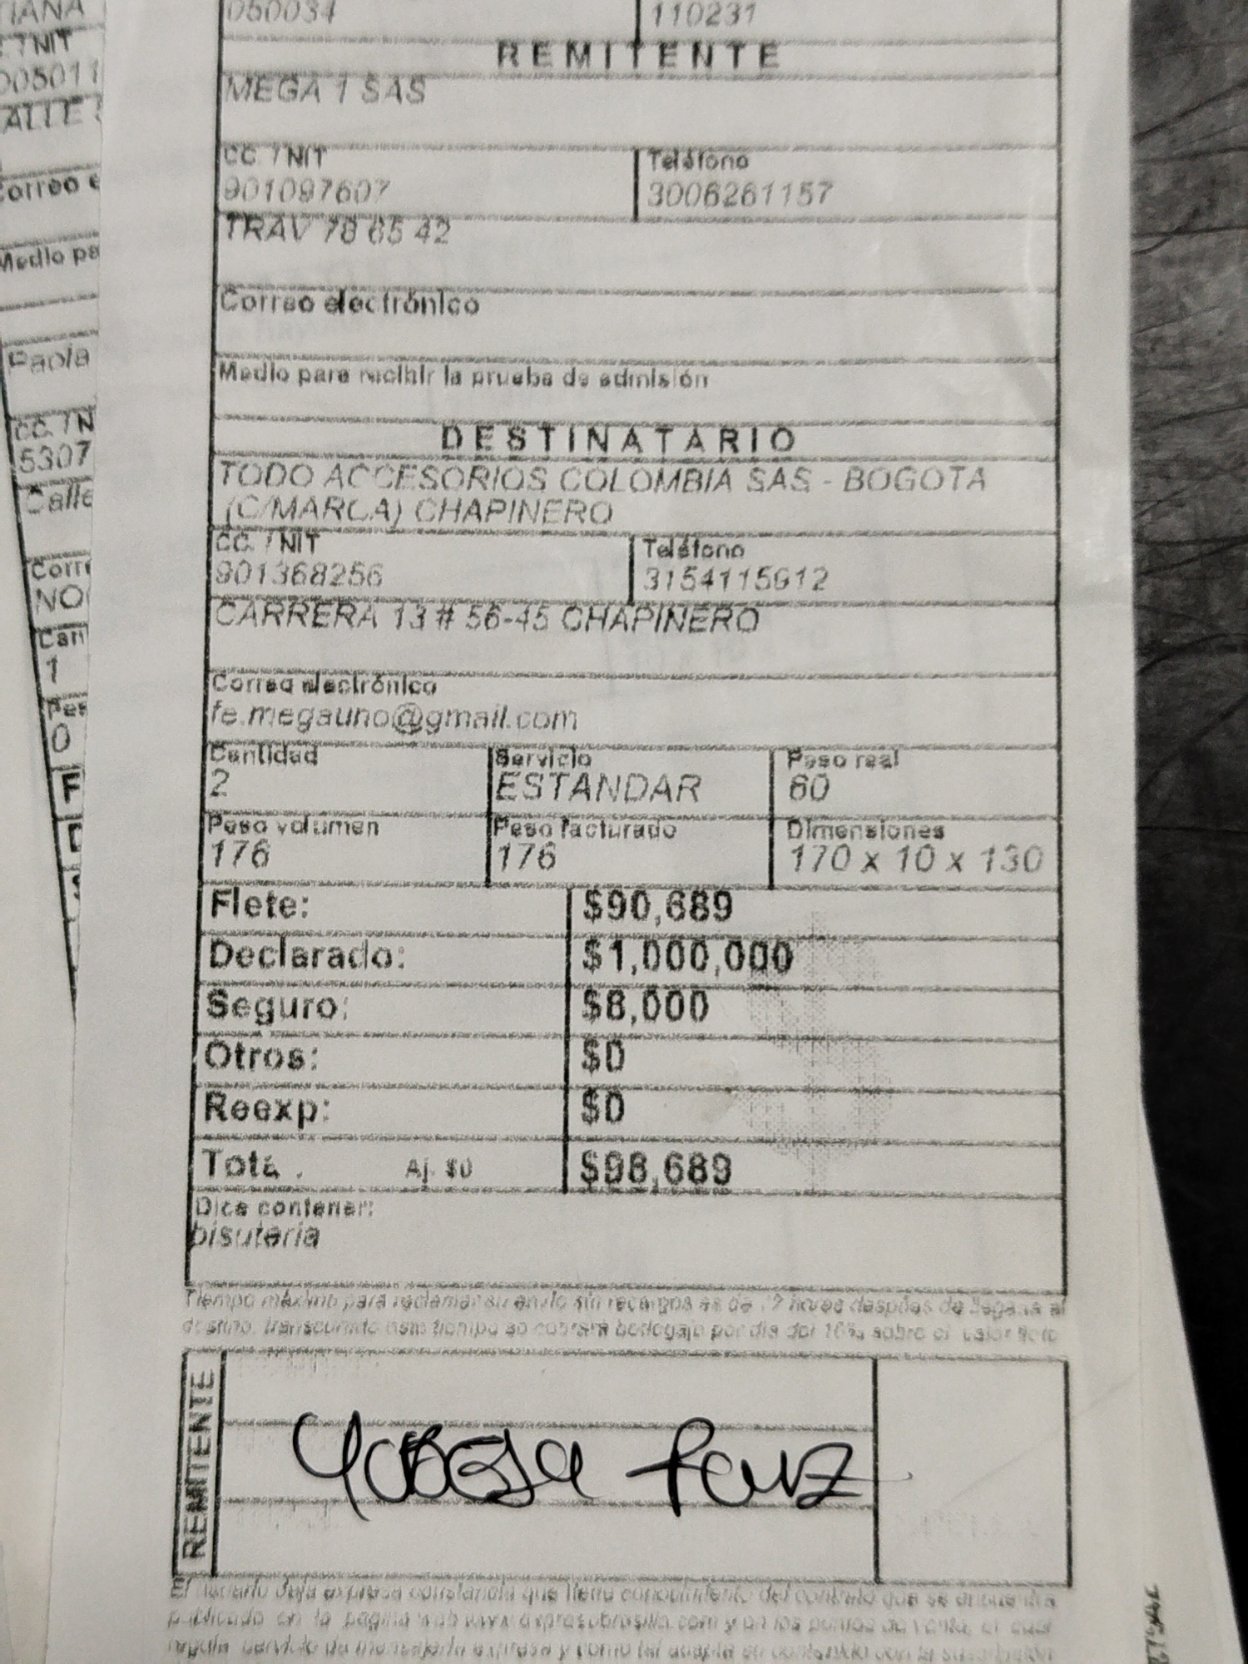 050034 110231
REMITENTE
MEGA 1 SAS
CC. / NIT Teléfono
901097607 3006261157
TRAV 78 65 42
Correo electrónico
Medio para recibir la prueba de admisión
DESTINATARIO
TODO ACCESORIOS COLOMBIA SAS - BOGOTA
(C/MARCA) CHAPINERO
CC. / NIT Teléfono
901368256 3154115912
CARRERA 13 # 56-45 CHAPINERO
Correo electrónico
fe.megauno@gmail.com
Cantidad Servicio Peso real
2 ESTANDAR 60
Peso volumen Peso facturado Dimensiones
176 176 170 x 10 x 130
Flete: $90,689
Declarado: $1,000,000
Seguro: $8,000
Otros: $0
Reexp: $0
Tota . Aj. $0 $98,689
Dice contener:
bisuteria
Tiempo máximo para reclamar su envío sin recargos es de 72 horas después de llegada al
destino, transcurrido este tiempo se cobrará bodegaje por día del 10% sobre el valor flete
REMITENTE
El usuario deja expresa constancia que tiene conocimiento del contrato que se encuentra
publicado en la página web www.expresobrasilia.com y en los puntos de venta, el cual
regula servicio de mensajería expresa y como tal acepta